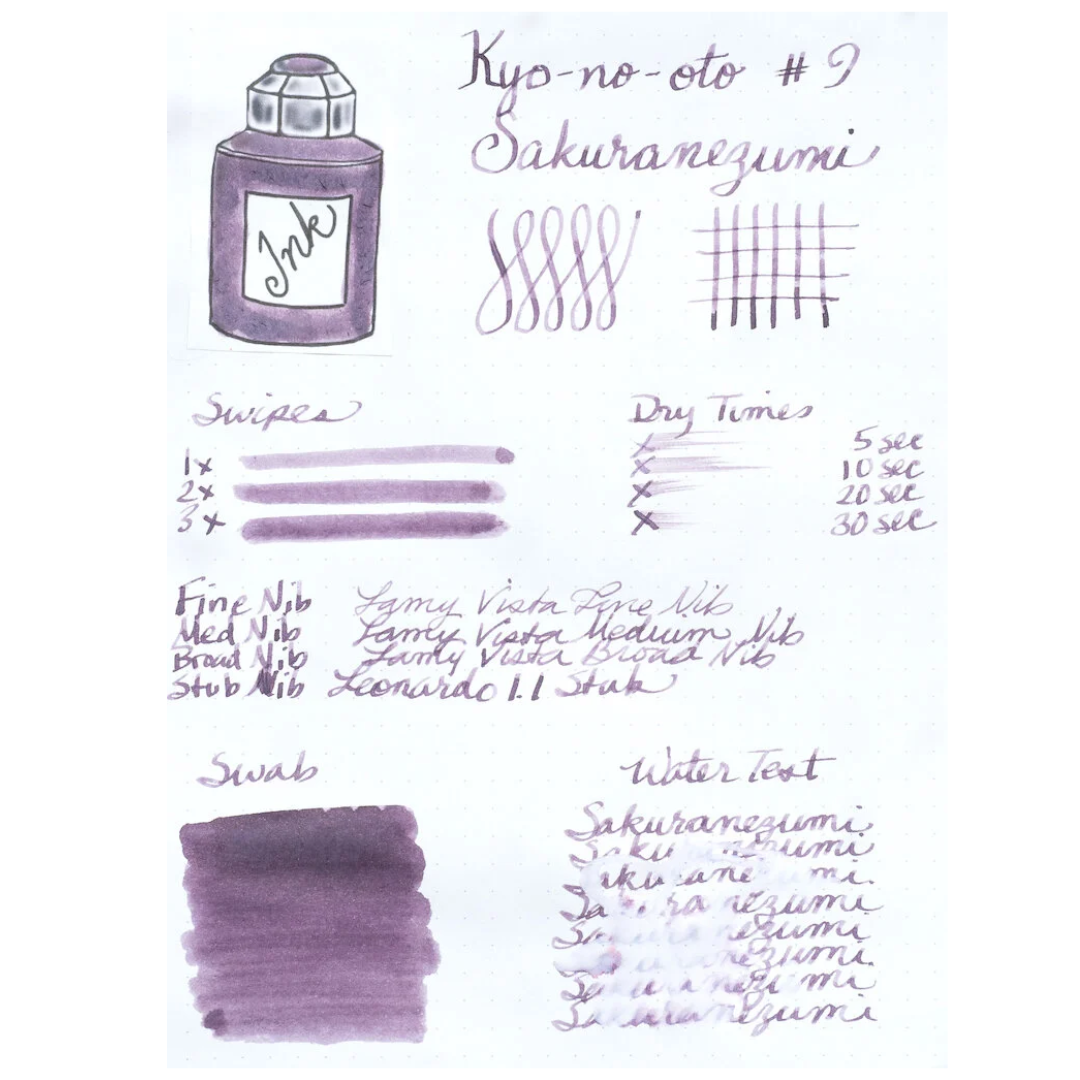 Kyo-no-oto #9
Sakuranezumi
Ink
Swipes
1x
2x
3x
Dry Times
x 5 sec
x 10 sec
x 20 sec
x 30 sec
Fine Nib Lamy Vista Fine Nib
Med Nib Lamy Vista Medium Nib
Broad Nib Lamy Vista Broad Nib
Stub Nib Leonardo 1.1 Stub
Swab
Water Test
Sakuranezumi
Sakuranezumi
Sakuranezumi
Sakuranezumi
Sakuranezumi
Sakuranezumi
Sakuranezumi
Sakuranezumi